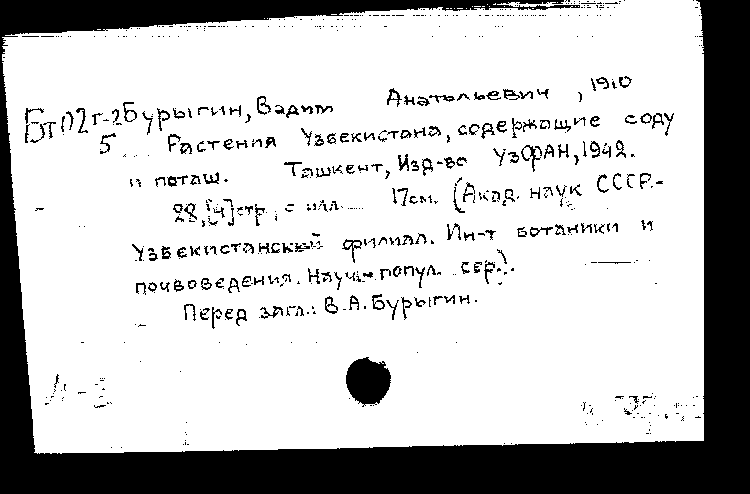 Бт02г-2 Бурыгин, Вадим Анатольевич, 1910
5 Растения Узбекистана, содержащие соду
и поташ. Ташкент, Изд-во УзФАН, 1942.
28,[4]стр, с илл. 17см. (Акад. наук СССР.-
Узбекистанский филиал. Ин-т ботаники и
почвоведения. Научн-попул. сер.).
Перед загл.: В.А.Бурыгин.